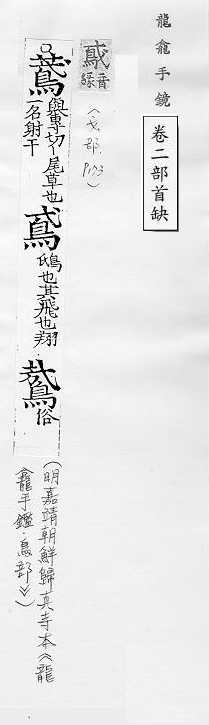 龍龕手鏡
卷二部首缺
鳶 音緣
（戈部.P173）
與專切～尾草也
一名射干
鳶 鴟也其飛也翔
俗
（明嘉靖朝鮮歸真寺本《龍
龕手鑑·鳥部》）